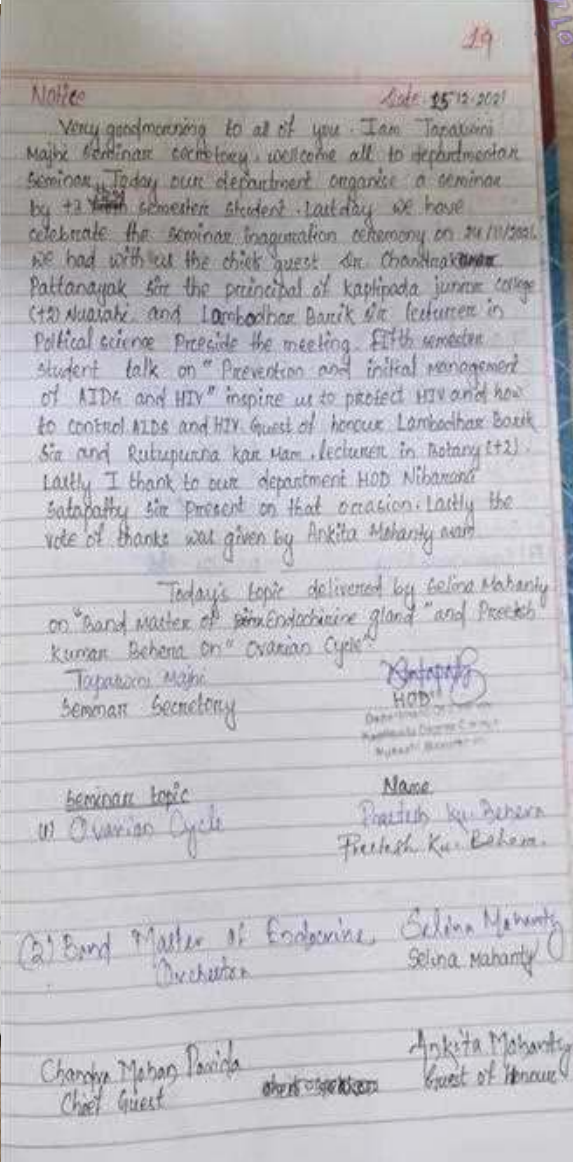 19
Notice Date 15.12.2021
Very goodmorning to all of you. I am Tapaswini
Majhi Seminar secretory, welcome all to departmental
Seminar. Today our department organise a seminar
by +3 semester student. Last day we have
celebrate the seminar inaguration ceremony on 24/11/2021
we had with us the chief guest Dr. Chandrakanar
Pattanayak Sir the principal of Kaptipada junior college
(+2) Nuasahi, and Lambodhar Barik sir lecturer in
Political science Preside the meeting. Fifth semester
student talk on "Prevention and initial management
of AIDS and HIV" inspire us to protect HIV and how
to control AIDS and HIV. Guest of honour Lambodhar Barik
Sir and Rutupurna Kar Mam, lecturer in Botany (+2).
Lastly I thank to our department HOD Nibarana
Satapathy Sir Present on that occasion. Lastly the
vote of thanks was given by Ankita Mohanty mam
Today's topic delivered by Selina Mahanty
on "Band Master of Endochirine gland" and Preetesh
Kumar Behera on "Ovarian Cycle".
Tapaswini Majhi
Seminar Secretory HOD
Seminar topic Name
(1) Ovarian Cycle Preetesh Ku. Behera
Preetesh Ku. Behera.
(2) Band Master of Endocrine Selina Mahanty
Orchestra Selina Mahanty
Chandra Mohan Parida Ankita Mohanty
Chief Guest Guest of Honour